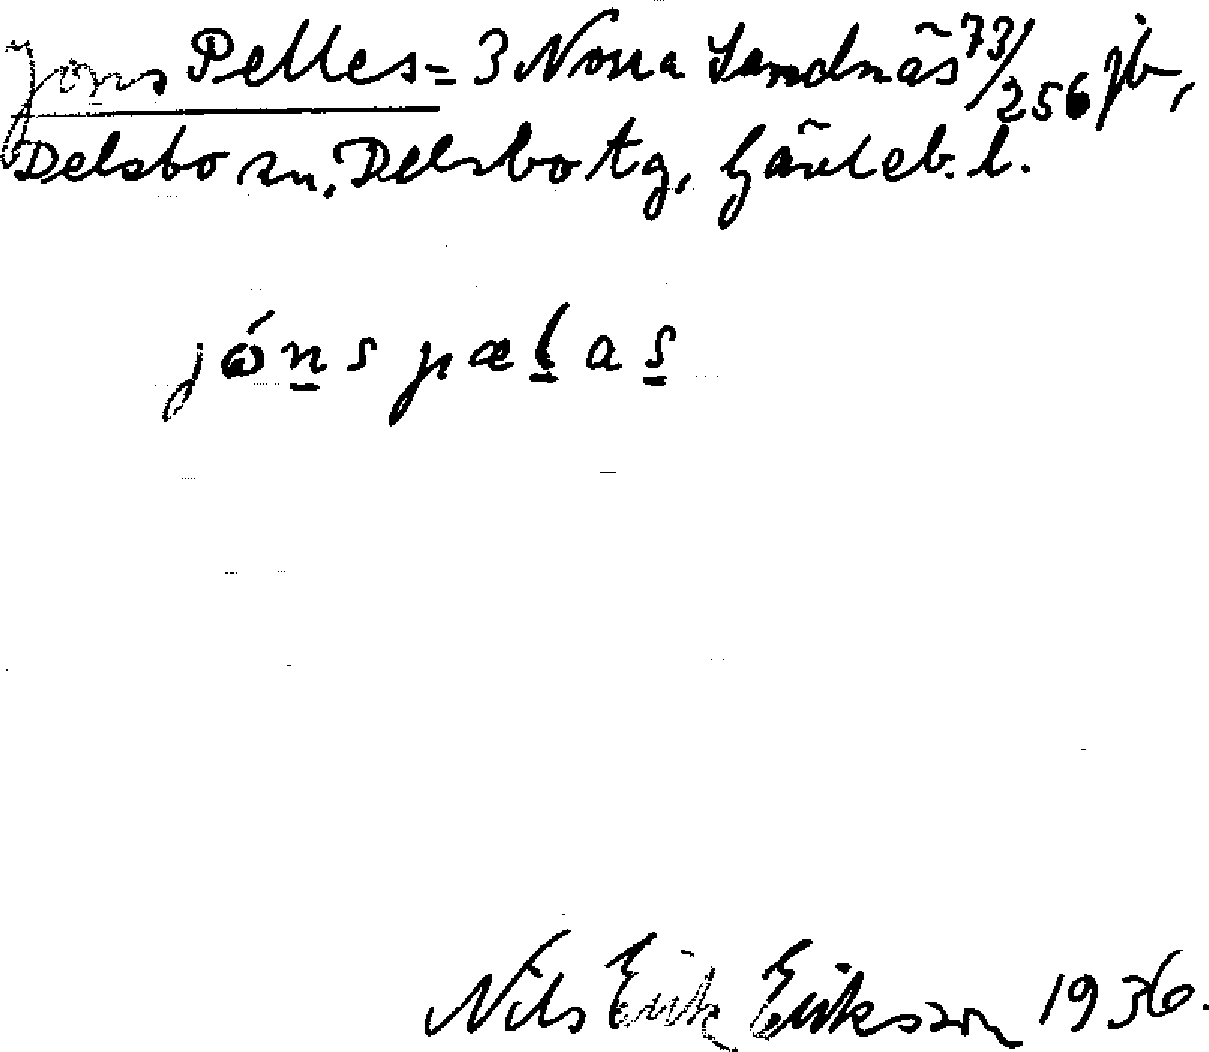 Jöns Pelles = 3 Norra Sandnäs 73/256 jb,
Delsbo sn, Delsbo tg, Gävleb. l.
jóns pælas
Nils Erik Eriksson 1936.